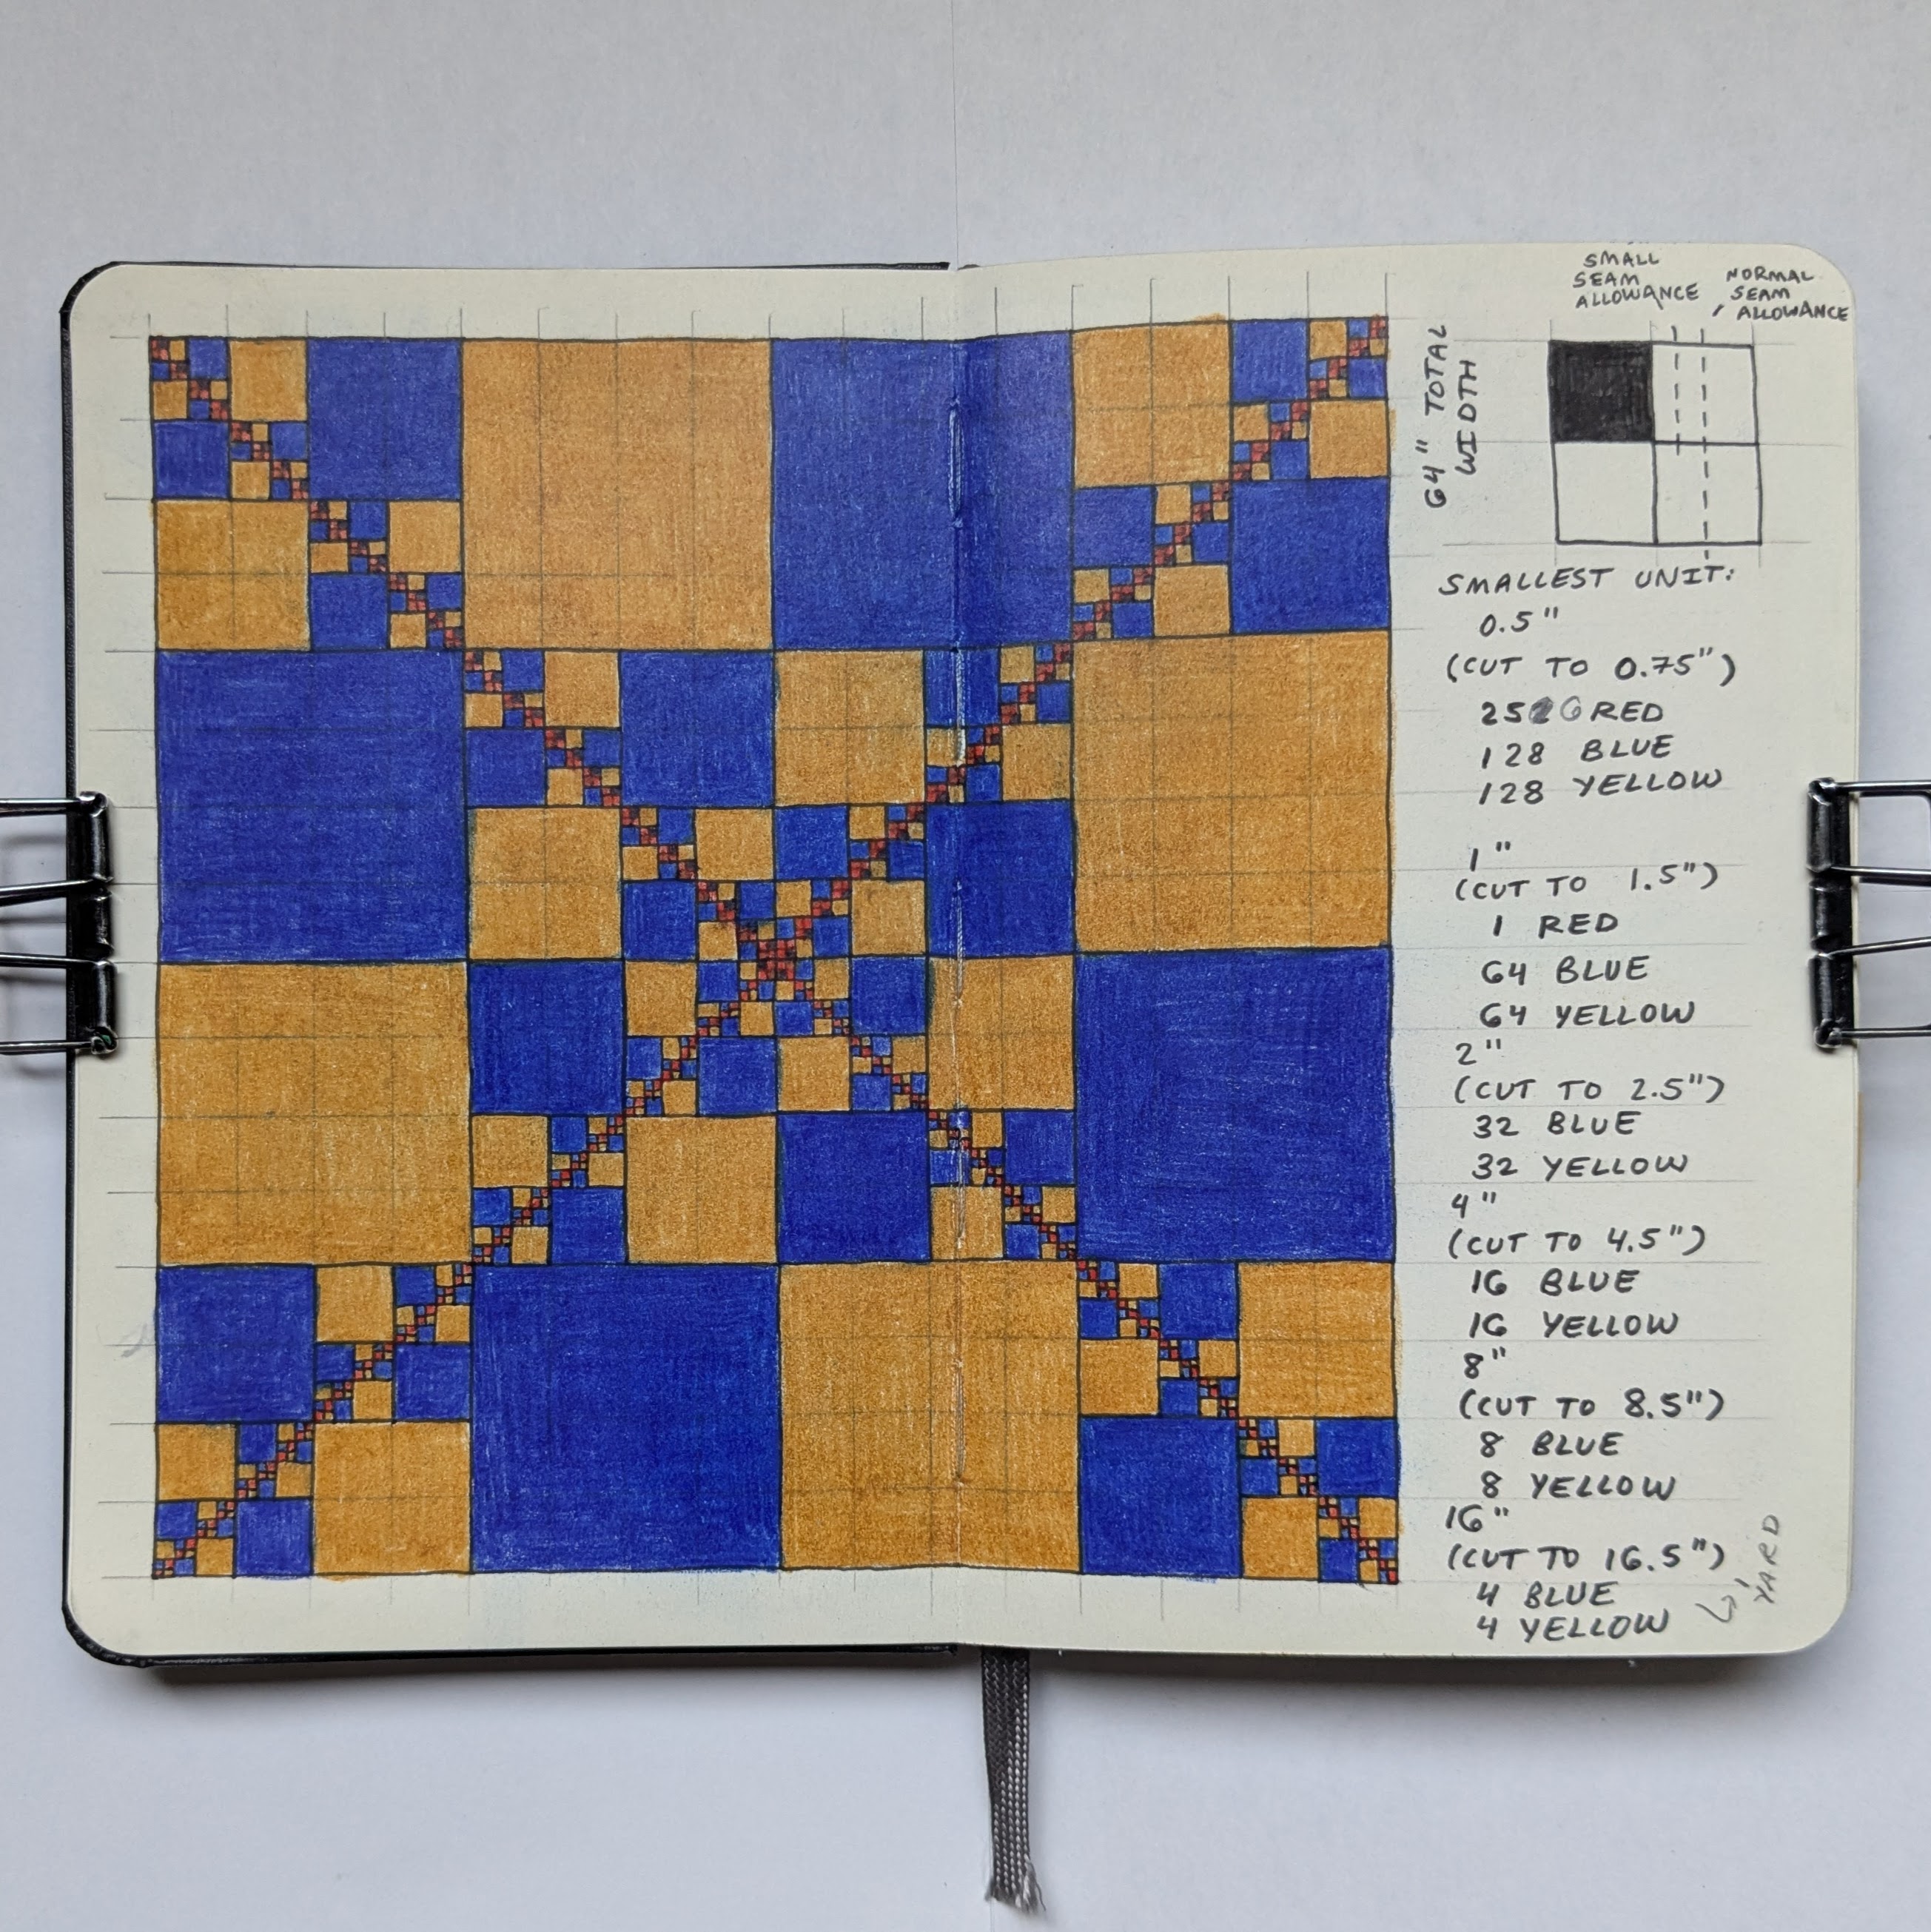 SMALL
SEAM
ALLOWANCE
NORMAL
SEAM
ALLOWANCE
64" TOTAL
WIDTH
SMALLEST UNIT:
0.5"
(CUT TO 0.75")
256 RED
128 BLUE
128 YELLOW
1"
(CUT TO 1.5")
1 RED
64 BLUE
64 YELLOW
2"
(CUT TO 2.5")
32 BLUE
32 YELLOW
4"
(CUT TO 4.5")
16 BLUE
16 YELLOW
8"
(CUT TO 8.5")
8 BLUE
8 YELLOW
16"
(CUT TO 16.5")
4 BLUE
4 YELLOW
1
YARD